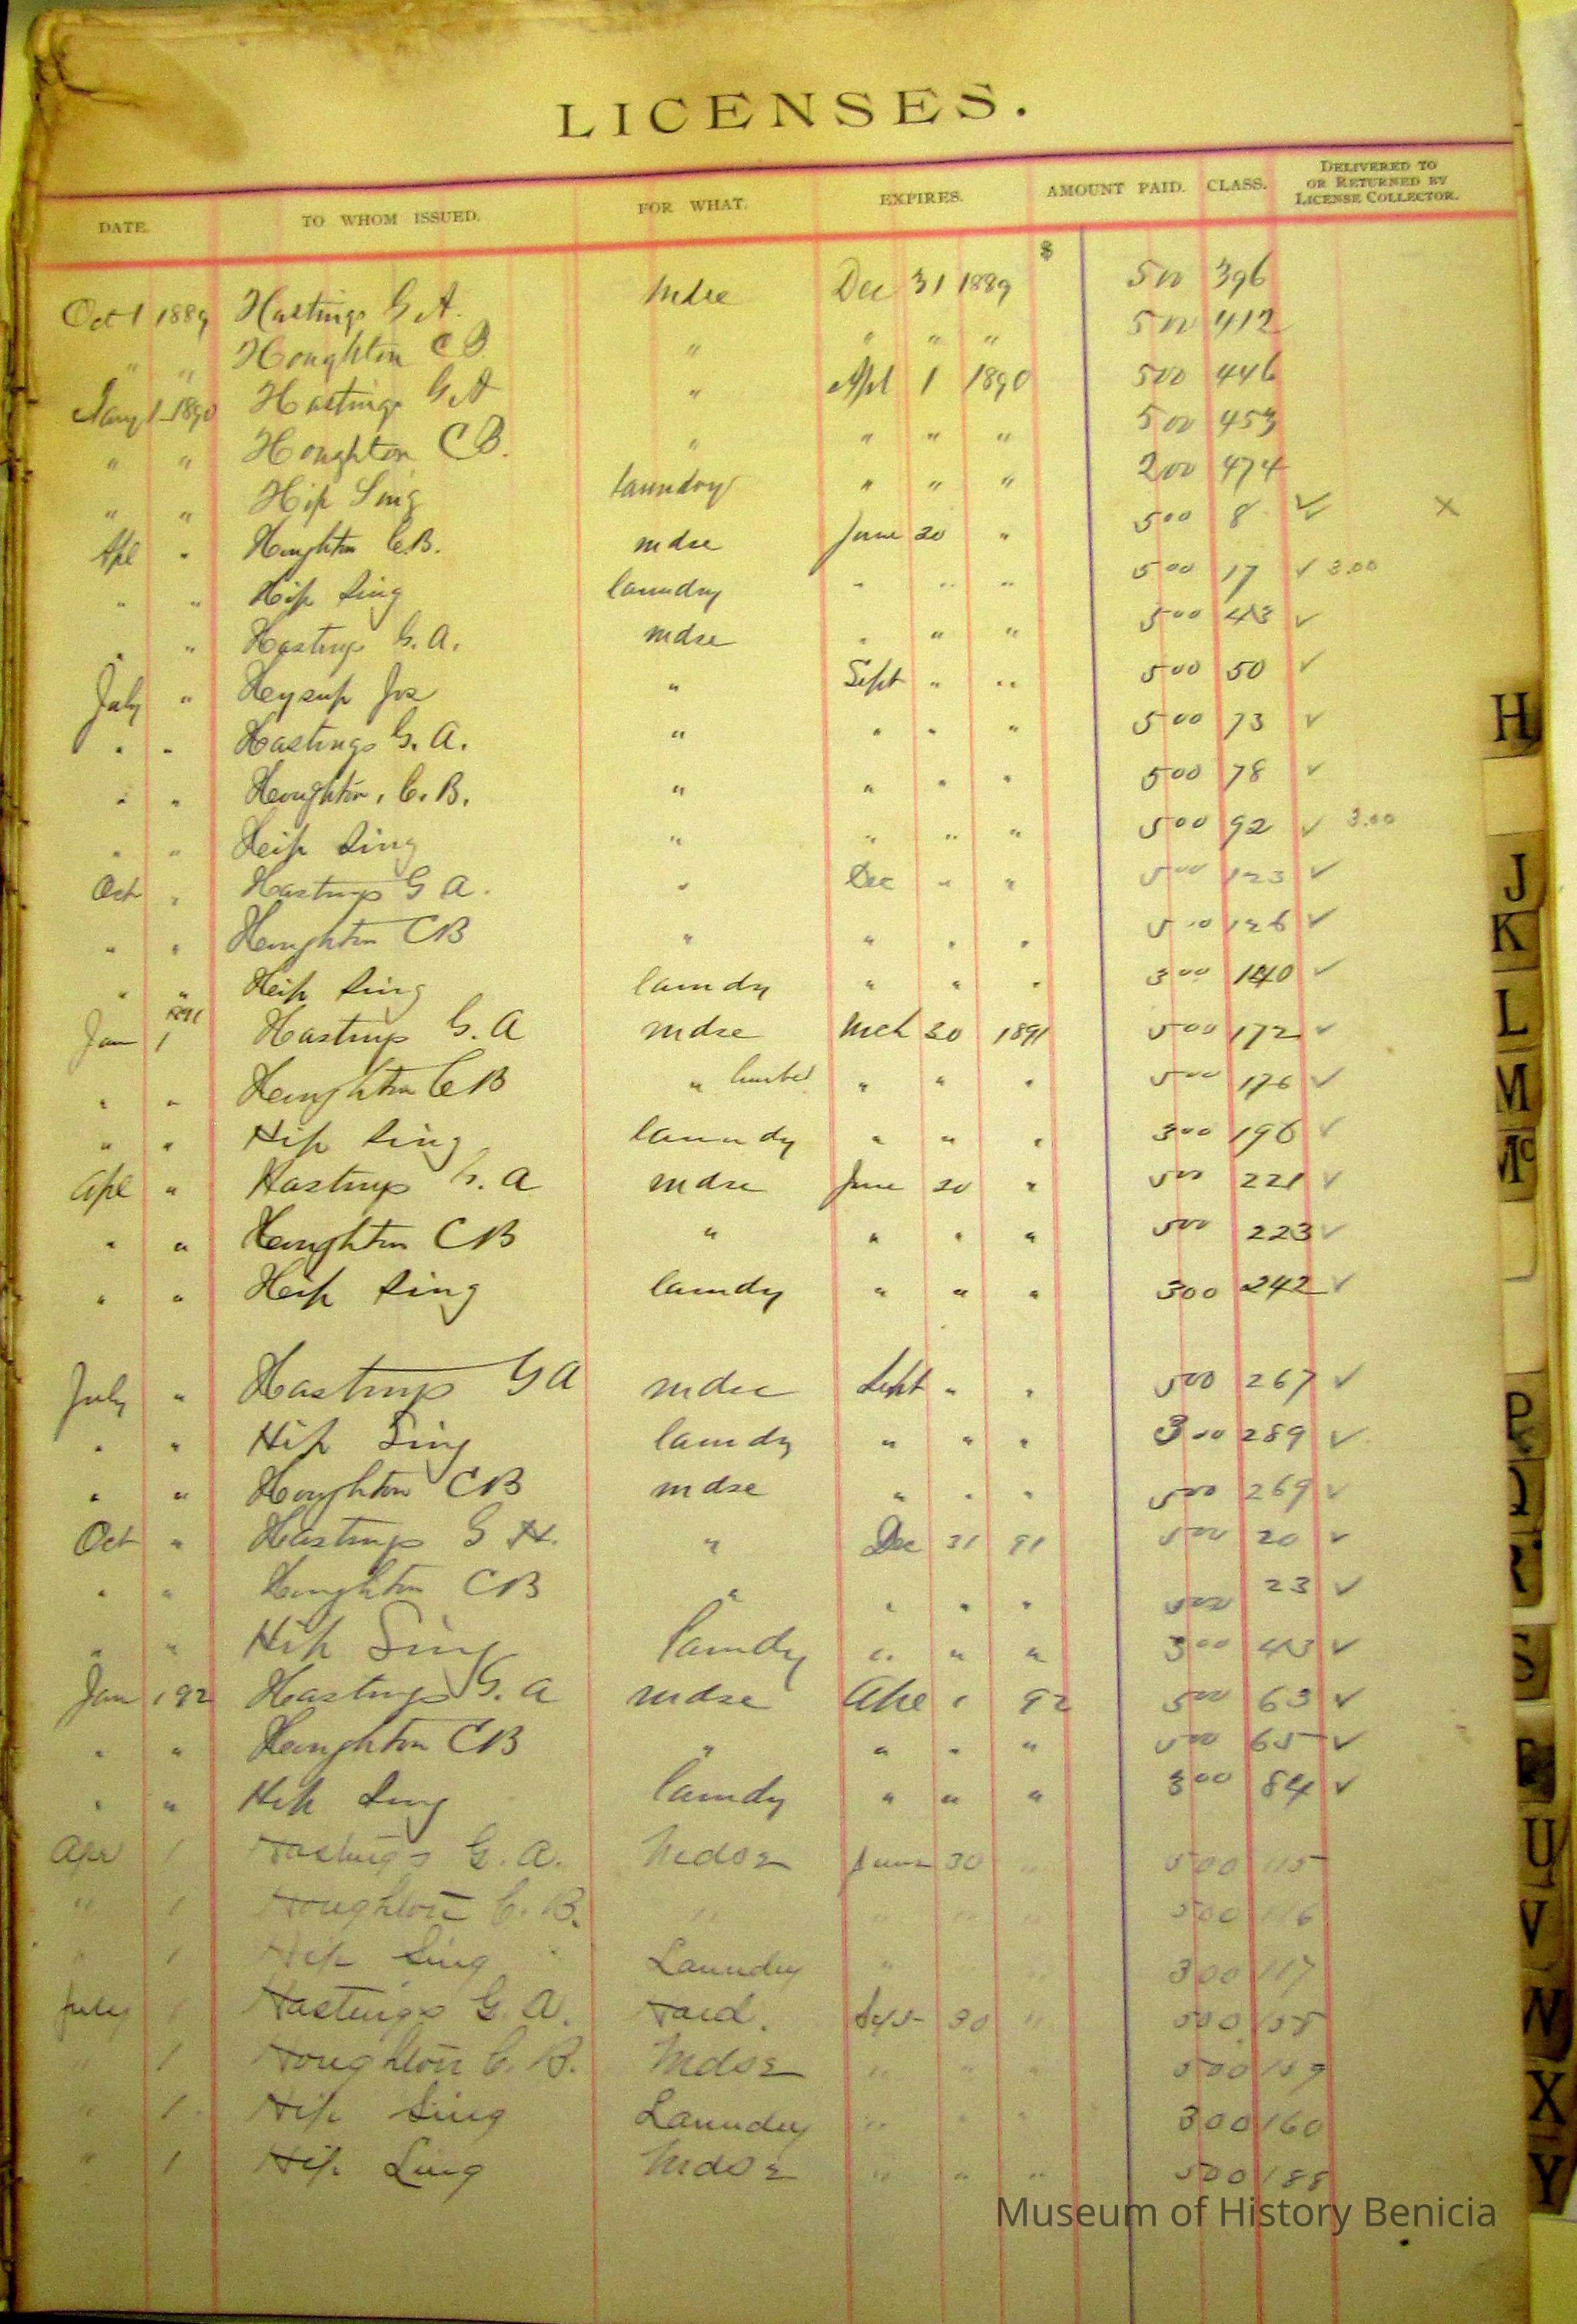 LICENSES.
DATE. TO WHOM ISSUED. FOR WHAT. EXPIRES. AMOUNT PAID. CLASS. DELIVERED TO OR RETURNED BY LICENSE COLLECTOR.
$
Oct 1 1889 Hastings G A. Mdse Dec 31 1889 500 396
" " Houghton C B " " " " 500 412
Jany 1 1890 Hastings G A " Apl 1 1890 500 446
" " Houghton C B. " " " " 500 453
" " Hip Sing laundry " " " 200 474
Apl " Houghton C.B. mdse June 30 " 500 8 ✓ ×
" " Hip Sing laundry " " " 500 17 ✓ 3.00
" " Hastings G. A. mdse " " " 500 43 ✓
July " Heysup Jos " Sept " " 500 50 ✓
" " Hastings G. A. " " " " 500 73 ✓
" " Houghton, C. B. " " " " 500 78 ✓
" " Heip Sing " " " " 500 92 ✓ 3.00
Oct " Hastings G A. " Dec " " 500 123 ✓
" " Houghton C B " " " " 500 126 ✓
" " Heip Sing laundry " " " 300 140 ✓
Jan 1 1891 Hastings G. A mdse Mch 30 1891 500 172 ✓
" " Houghton C B " lumber " " " 500 176 ✓
" " Hip Sing laundry " " " 300 196 ✓
Apl " Hastings G. A mdse June 30 " 500 221 ✓
" " Houghton C B " " " " 500 223 ✓
" " Heip Sing laundry " " " 300 242 ✓
July " Hastings G A mdse Sept " " 500 267 ✓
" " Hip Sing laundry " " " 300 289 ✓
" " Houghton C B mdse " " " 500 269 ✓
Oct " Hastings G A. " Dec 31 91 500 20 ✓
" " Houghton C B " " " " 500 23 ✓
" " Hip Sing laundry " " " 300 43 ✓
Jan 1 92 Hastings G. A mdse Apl 1 92 500 63 ✓
" " Houghton C B " " " " 500 65 ✓
" " Hip Sing laundry " " " 300 84 ✓
Apr 1 Hastings G. A. Mdse June 30 " 500 115
" 1 Houghton C. B. " " " " 500 116
" 1 Hip Sing Laundry " 300 117
July 1 Hastings G. A. Hard. Sept 30 " 500 158
" 1 Houghton C. B. Mdse " " " 500 159
" 1 Hip Sing Laundry " " " 300 160
" 1 Hip Sing Mdse " " " 500 188
H
J
K
L
M
Mc
P
S
U
V
W
X
Y
Museum of History Benicia